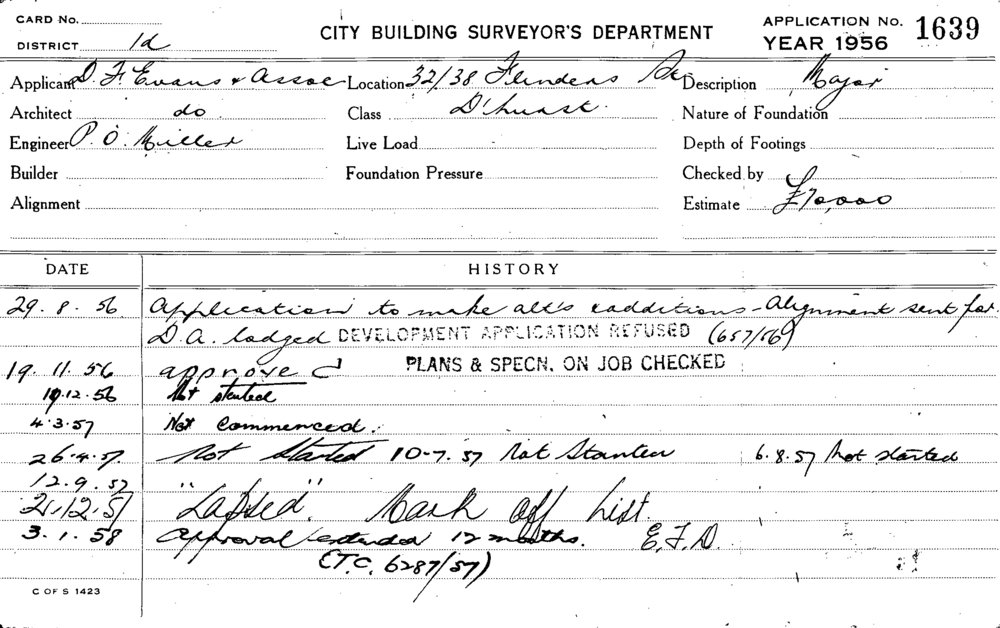 CARD No.
DISTRICT 1d
CITY BUILDING SURVEYOR'S DEPARTMENT
APPLICATION No. 1639
YEAR 1956
Applicant D. F. Evans & Assoc Location 32/38 Flinders St Description Major
Architect do Class D'hurst. Nature of Foundation
Engineer P. O. Miller Live Load Depth of Footings
Builder Foundation Pressure Checked by
Alignment Estimate £70,000
DATE HISTORY
29. 8. 56 Application to make alt's & additions - Alignment sent for.
D.A. lodged DEVELOPMENT APPLICATION REFUSED (657/56)
19. 11. 56 approved PLANS & SPECN. ON JOB CHECKED
19.12.56 Not started
4.3.57 Not commenced.
26.4.57. Not Started 10-7.57 Not Started 6.8.57 Not started
12.9.57
21.12.57 "Lapsed". Mark off List.
3.1.58 Approval extended 12 months. E.F.D.
(T.C. 6287/57)
C OF S 1423